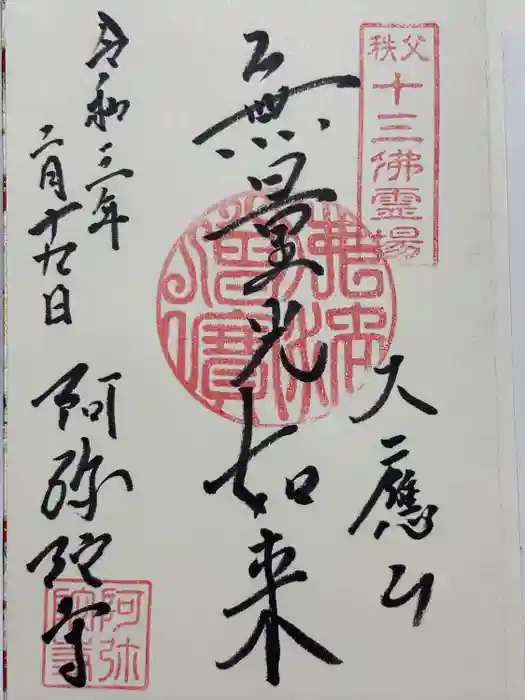 秩父
十三佛霊場
大應山
無量光如来
令和三年
二月十九日
阿弥陀寺
佛法僧寶
阿弥
陀寺